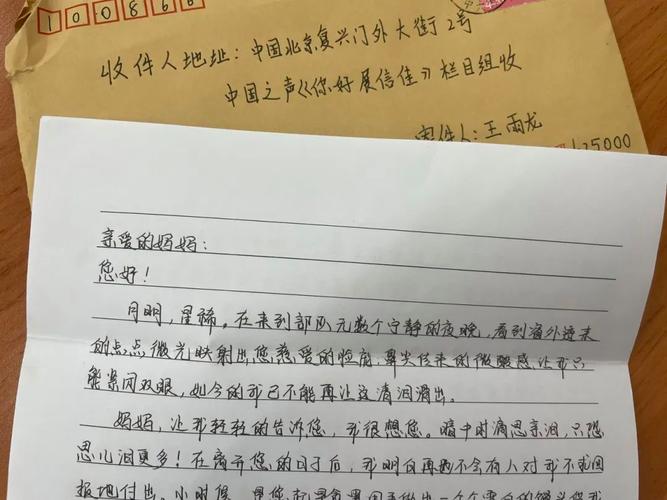 100866
收件人地址：中国北京复兴门外大街2号
中国之声《你好展信佳》栏目组收
寄件人：王雨龙
125000
亲爱的妈妈：
您好！
月明，星稀。在来到部队无数个宁静的夜晚，看到窗外透来
的点点微光映射出您慈爱的脸庞，鼻尖传来的微酸感让我只
能紧闭双眼，如今的我已不能再让这清泪滑出。
妈妈，让我轻轻的告诉您，我很想您。暗中时滴思亲泪，只恐
思儿泪更多！在离开您的日子后，我明白再也不会有人对我不求回
报地付出。小时候